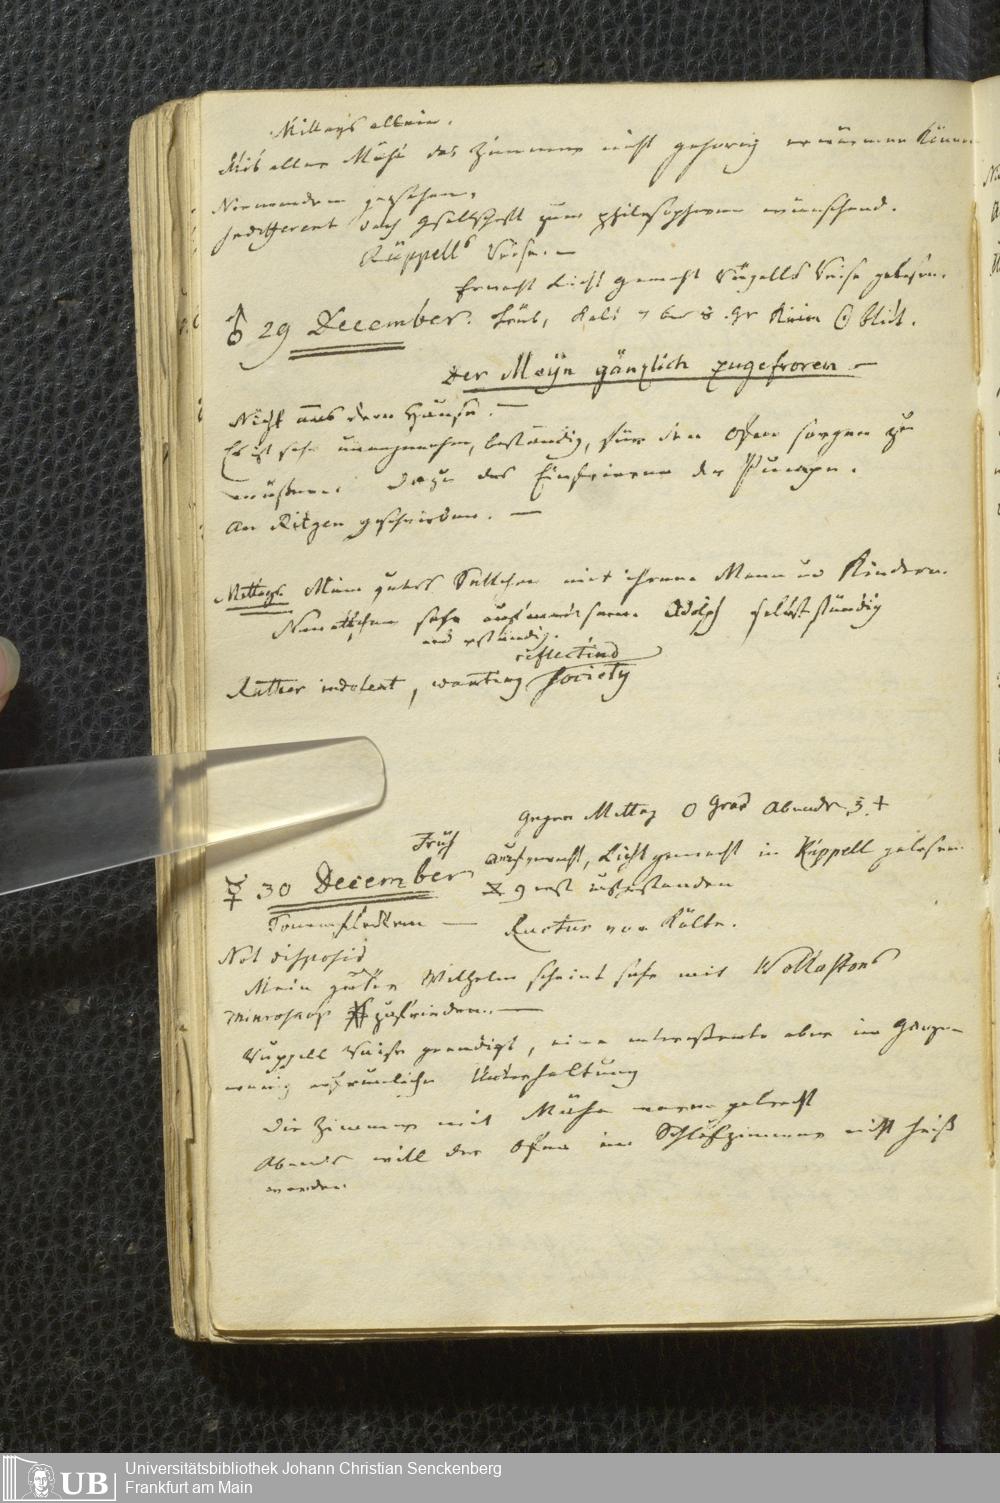 Mittags allein.
Mit aller Mühe das Zimmer nicht gehörig erwärmen können
Niemanden gesehen.
Indifferent doch Gesellschaft zum philosophiren wünschend.
Rüppells Reise. —
Erwacht Licht gemacht Rüppells Reise gelesen.
♂ 29 December. Trüb, kalt 7 bis 8 Gr kein ☉ blick.
Der Mayn gänzlich zugefroren —
Nicht aus dem Hause. —
Es ist sehr unangenehm, beständig, für den Ofen sorgen zu
müssen. Dazu das Einfrieren der Pumpe.
An Ritgen geschrieben. —
Mittags. Mein gutes mit ihrem Mann und Kindern.
sehr aufmerksam. Adolph selbstständig
und verständig.
reflecting
Rather indolent, wanting society
gegen Mittag 0 Grad Abends 3 +
Früh
☿ 30 December aufgewacht, Licht gemacht in Rüppell gelesen.
9 erst aufgestanden
— Ructus von Kälte.
Not disposed
Mein guter Wilhelm scheint sehr mit Wollastons
Microscop zufrieden. —
Rüppell Reise geendigt, eine interessante aber im Ganzen
wenig erfreuliche Unterhaltung
Die Zimmer mit Mühe warm gebracht
Abends will der Ofen im Schlafzimmer nicht heiß
werden.
UB
Universitätsbibliothek Johann Christian Senckenberg
Frankfurt am Main